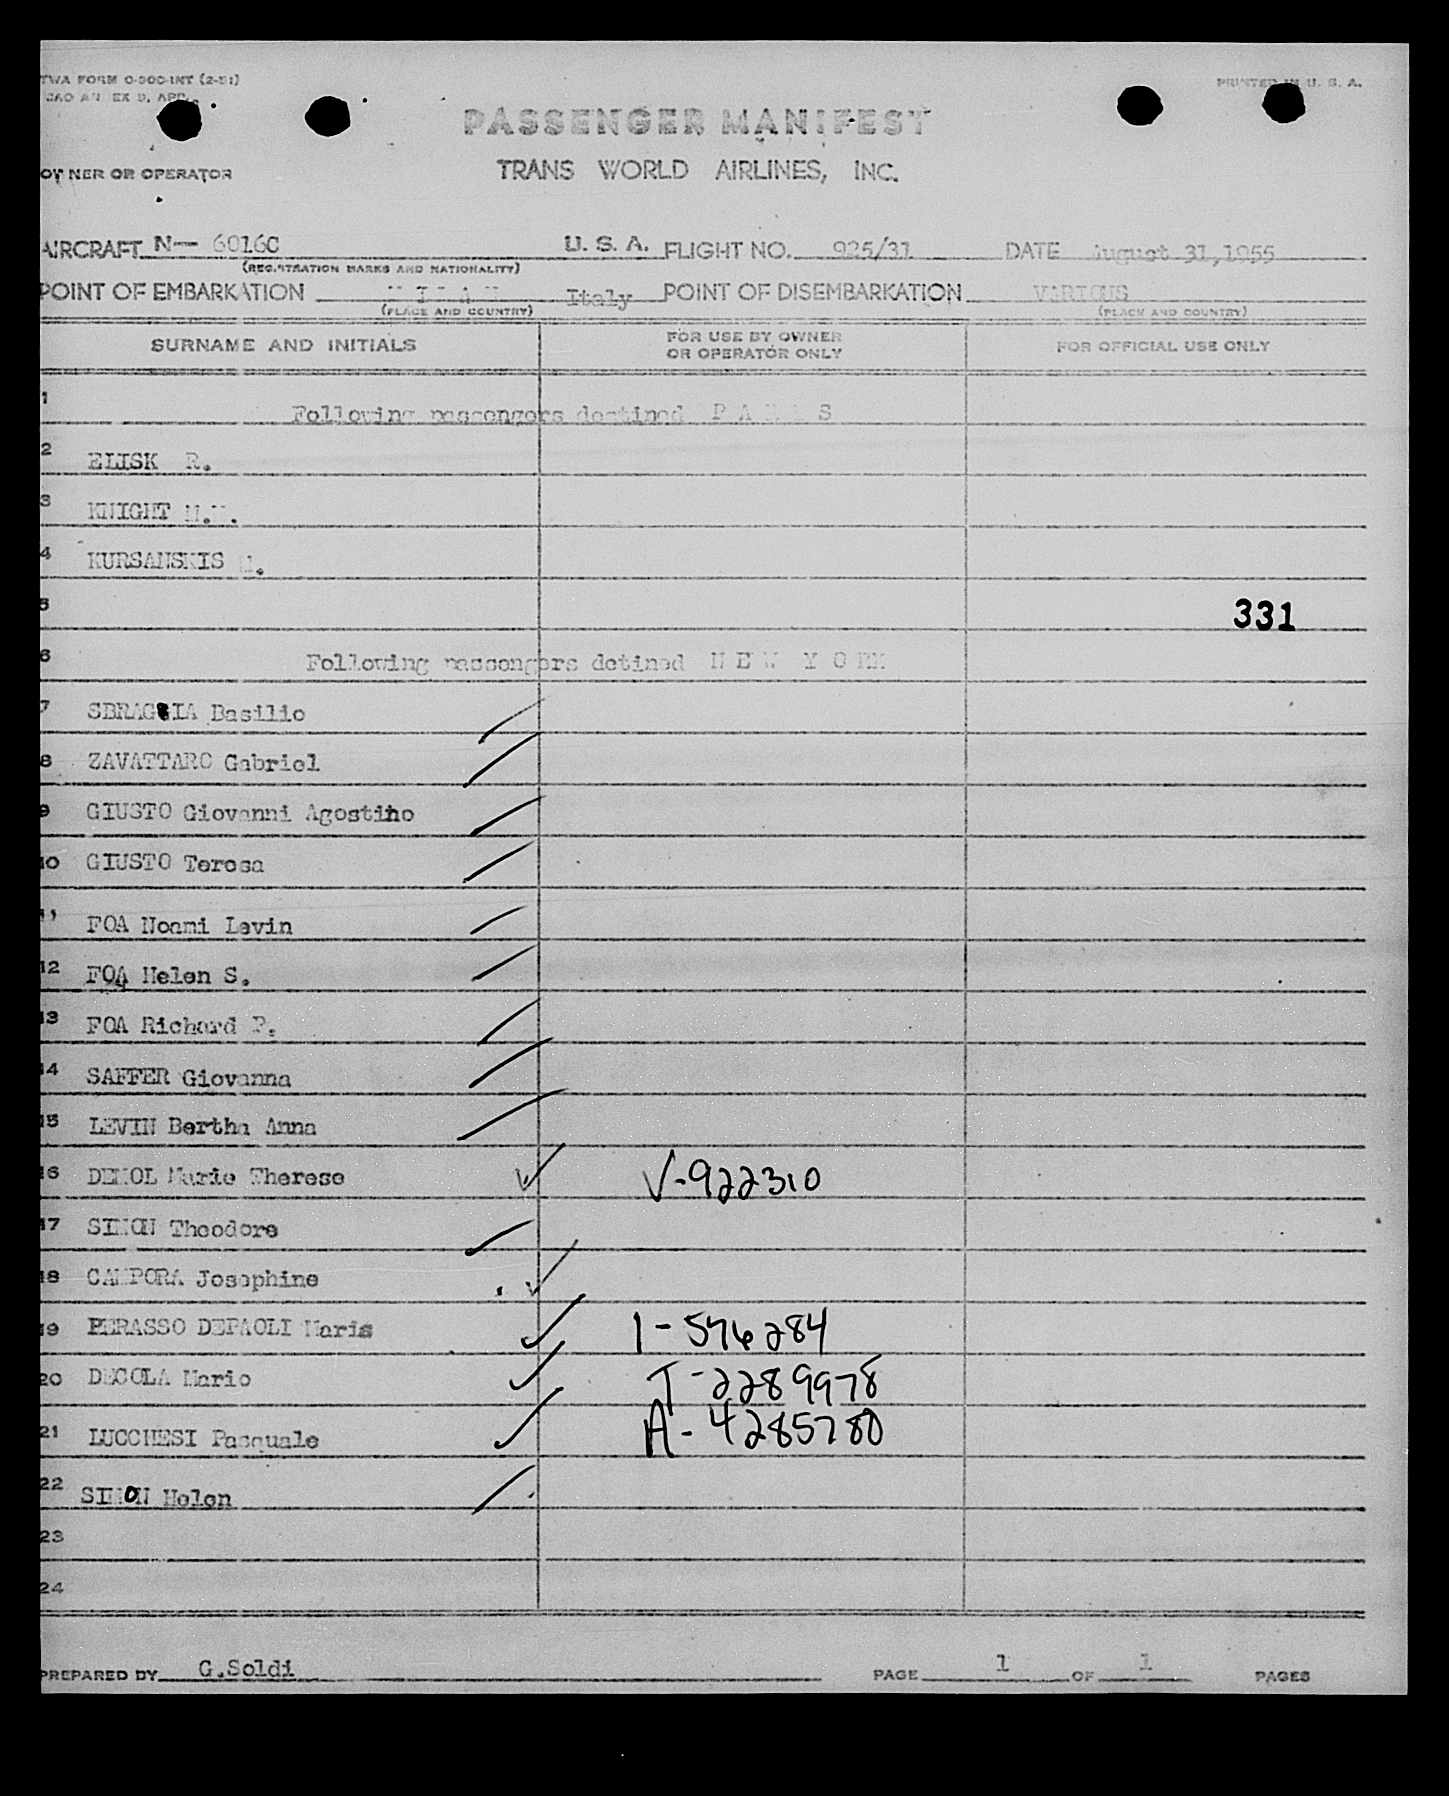 TWA FORM O-900-INT (2-51)
PRINTED IN U. S. A.
ICAO ANNEX 9, APP.
PASSENGER MANIFEST
OWNER OR OPERATOR
TRANS WORLD AIRLINES, INC.
AIRCRAFT N— 6016C U. S. A. FLIGHT NO. 925/31 DATE August 31,1955
(REGISTRATION MARKS AND NATIONALITY)
POINT OF EMBARKATION M I L A N Italy POINT OF DISEMBARKATION VARIOUS
(PLACE AND COUNTRY) (PLACE AND COUNTRY)
SURNAME AND INITIALS FOR USE BY OWNER OR OPERATOR ONLY FOR OFFICIAL USE ONLY
1 Following passengers destined P A R I S
2 ELISK R.
3 KNIGHT
4 KURSANSKIS
5
331
6 Following passengers detined N E W Y O RK
7 SBRAGGIA Basilio
8 ZAVATTARO Gabriel
9 GIUSTO Giovanni Agostino
10 GIUSTO Teresa
11 FOA Noami Levin
12 FOA Helen S.
13 FOA Richard P.
14 SAFFER Giovanna
15 LEVIN Bertha Anna
16 DEMOL Marie Therese V-922310
17 SIMON Theodore
18 CAMPORA Josephine
19 PERASSO DEPAOLI Maris 1-576284
20 DECOLA Mario T-2289978
21 LUCCHESI Pasquale A-4285780
22 SIMON Helen
23
24
PREPARED BY G.Soldi PAGE 1 OF 1 PAGES